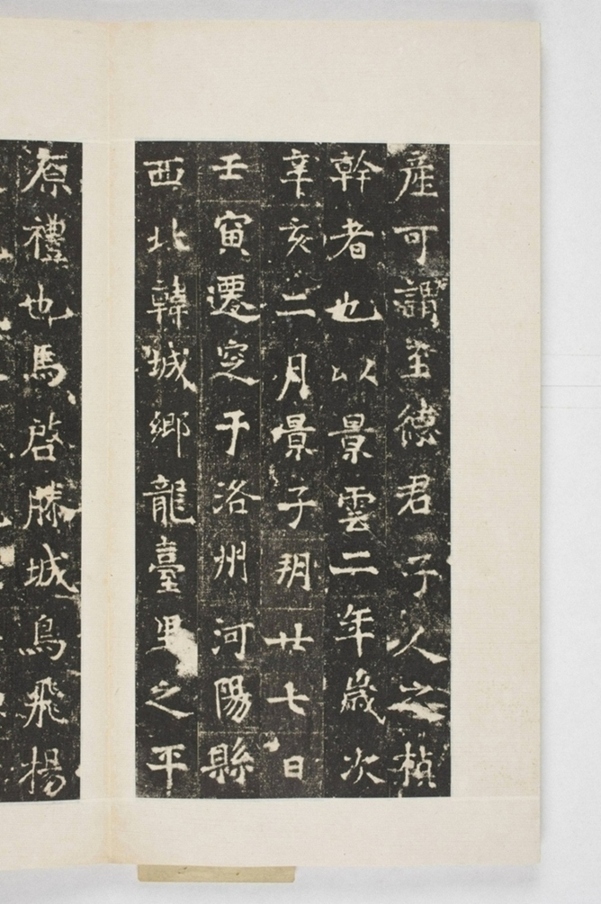 產可謂至德君子人之楨
幹者也以景雲二年歲次
辛亥二月景子朔廿七日
壬寅遷窆于洛州河陽縣
西北韓城鄉龍臺里之平
原禮也馬啓滕城鳥飛楊